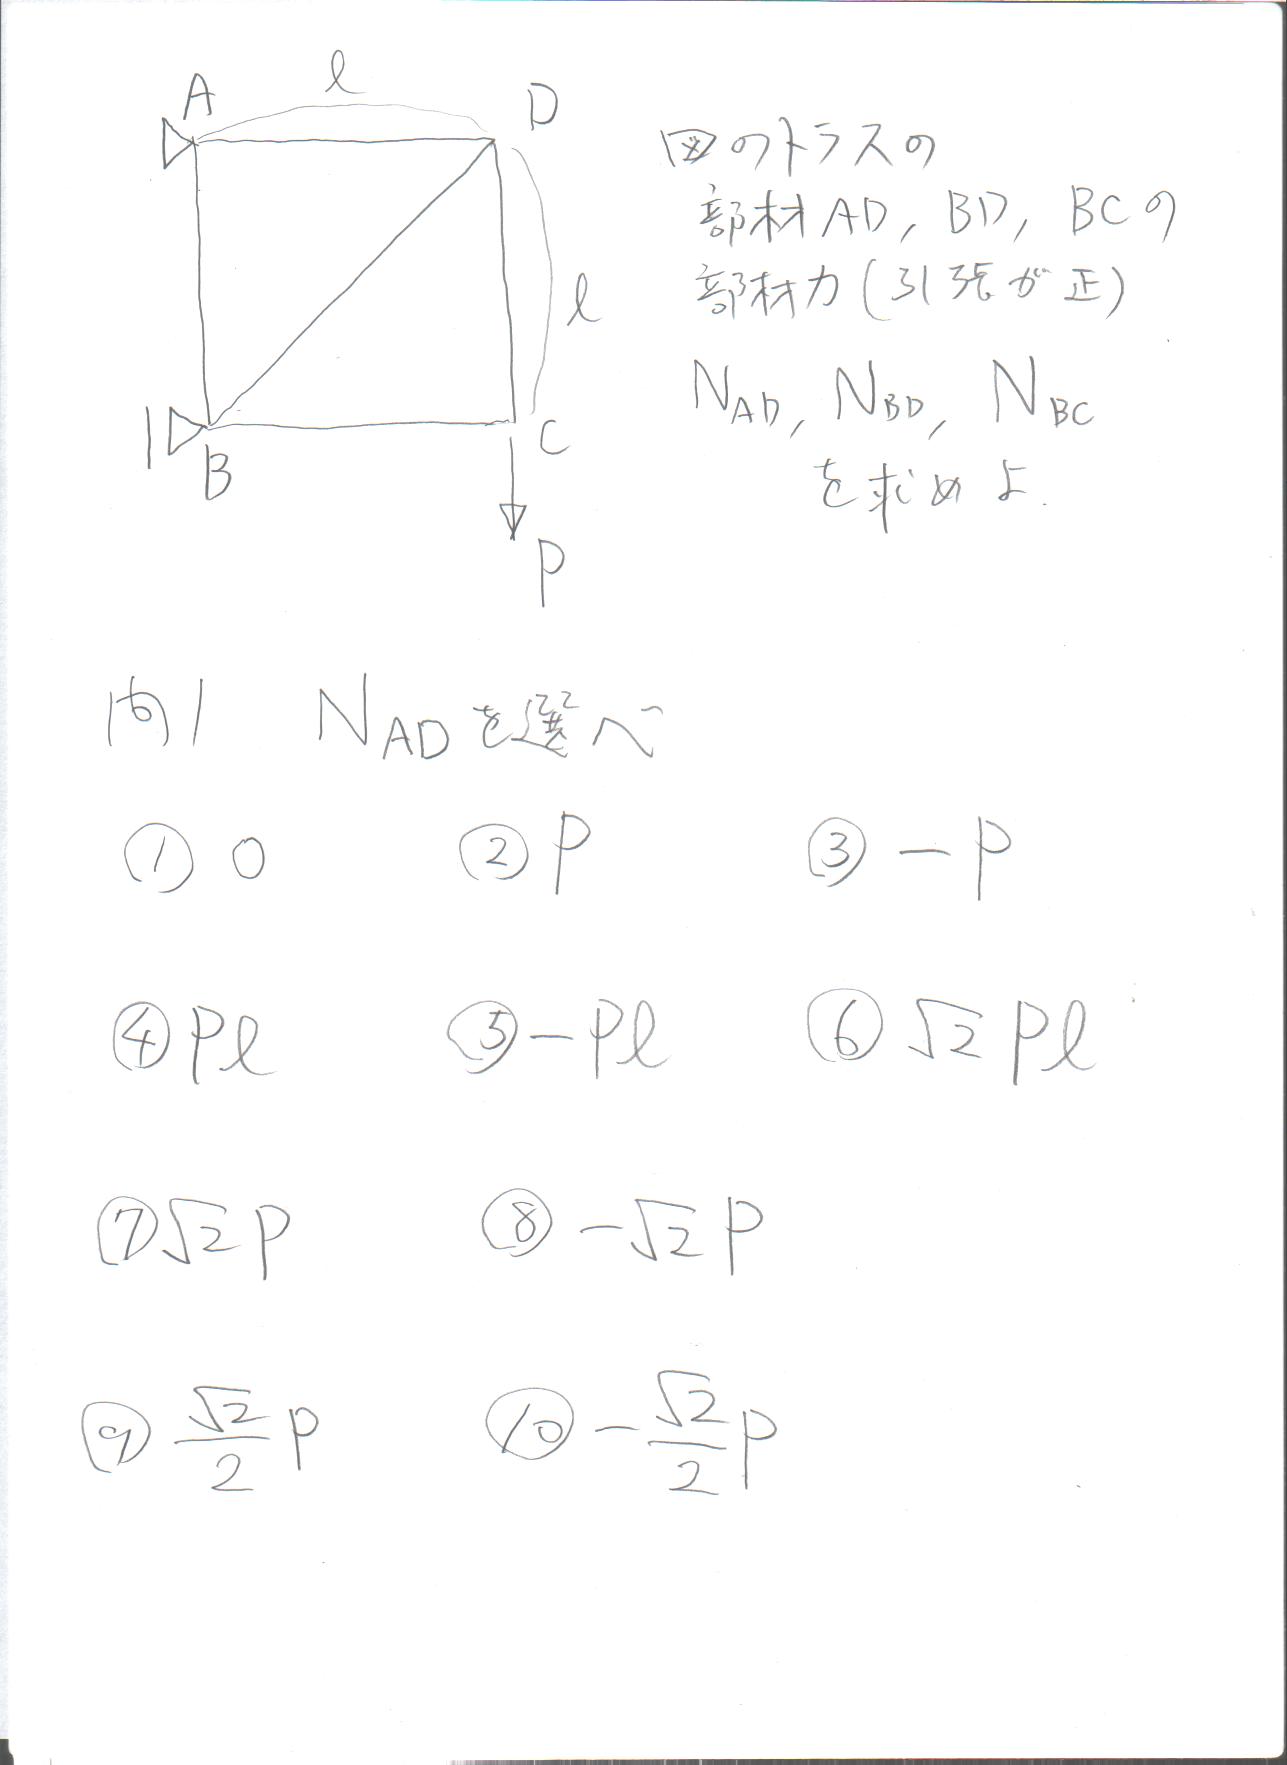 A
ℓ
D
図のトラスの
部材AD, BD, BCの
部材力(引張が正)
ℓ
N_AD, N_BD, N_BC
B
C
を求めよ.
P
問1 N_ADを選べ
① 0 ② P ③ -P
④ Pℓ ⑤ -Pℓ ⑥ √2 Pℓ
⑦ √2 P ⑧ -√2 P
⑨ √2/2 P ⑩ -√2/2 P